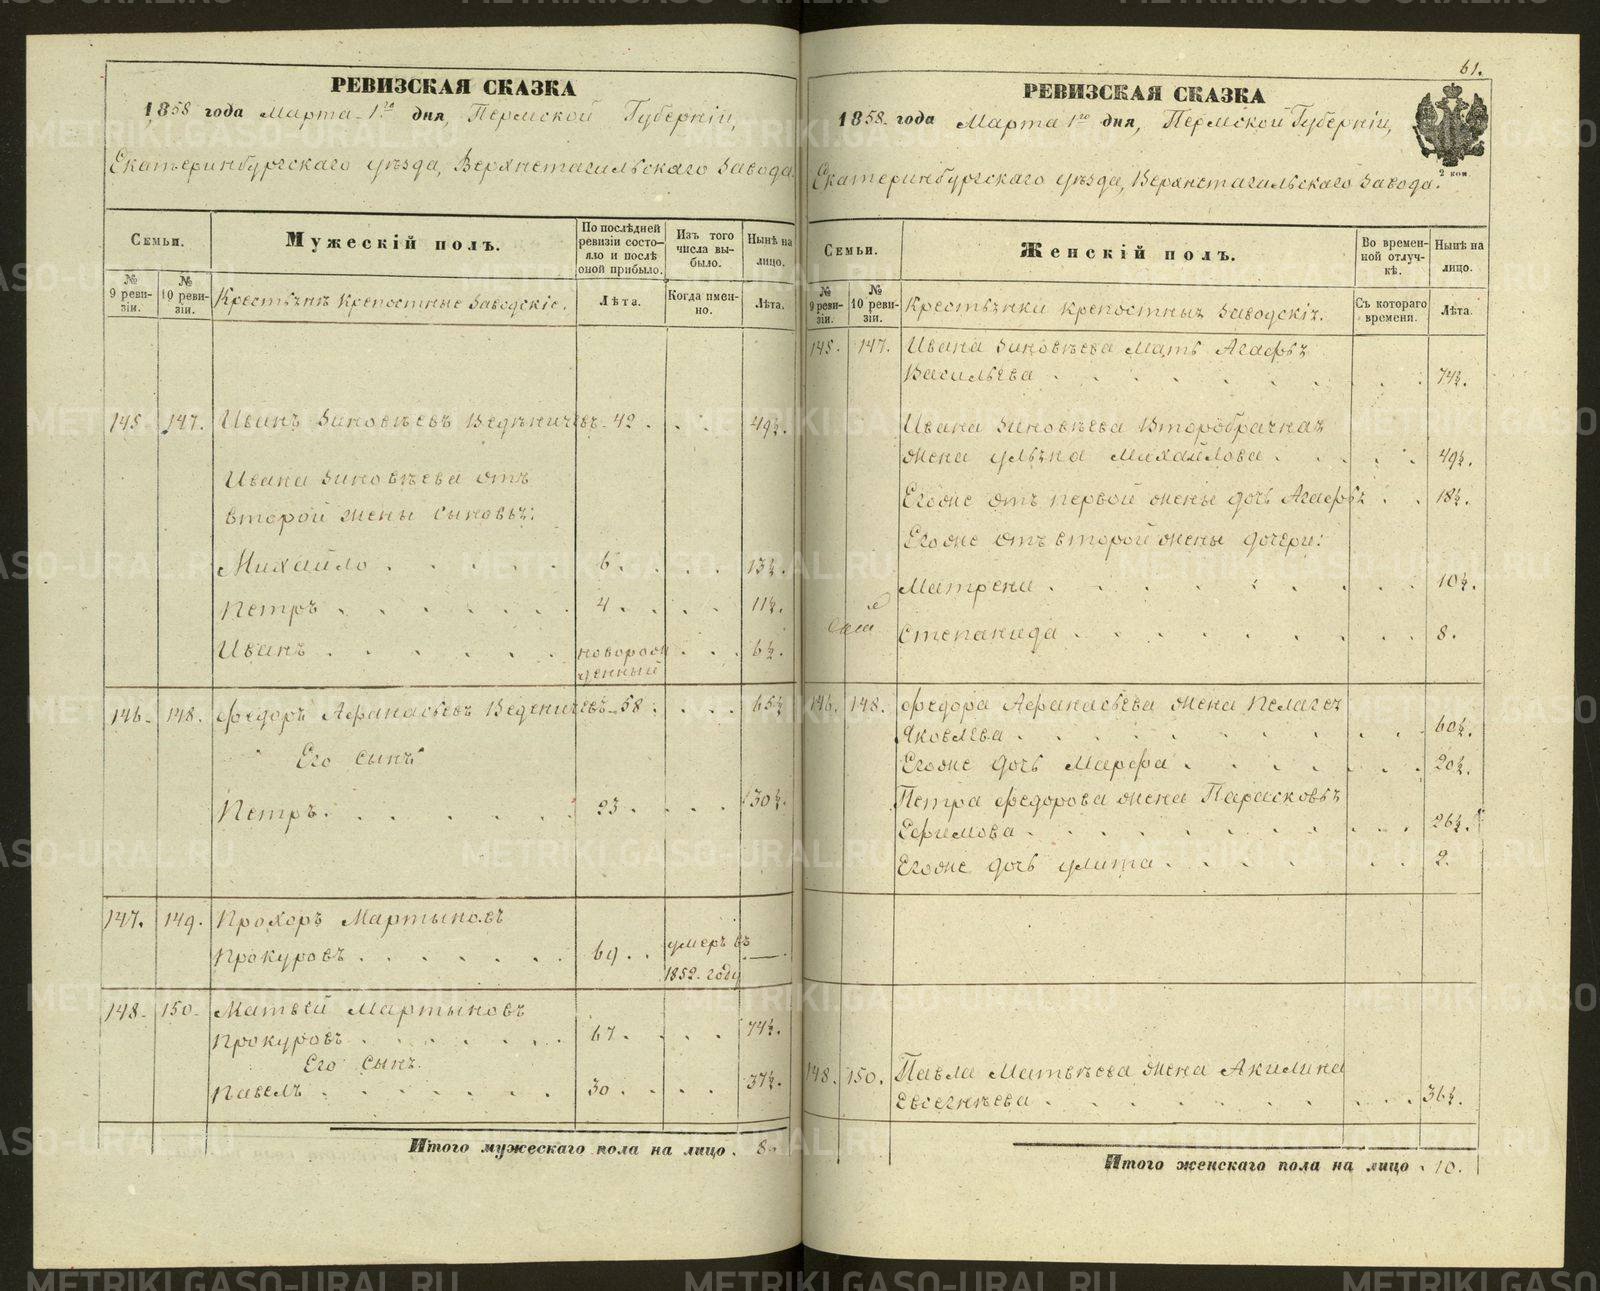 РЕВИЗСКАЯ СКАЗКА
1858 года Марта 1го дня, Пермской Губерніи,
Екатеринбургскаго уѣзда, Верхнетагильскаго Завода.
Семьи.
Мужескій полъ.
По послѣдней ревизіи состояло и послѣ оной прибыло.
Изъ того числа выбыло.
Нынѣ на лицо.
№ 9 ревизіи.
№ 10 ревизіи.
Крестьяне крепостные Заводскіе.
Лѣта.
Когда именно.
Лѣта.
145 147. Иванъ Зиновѣевъ Веденичевъ 42 . . . 49½.
Ивана Зиновѣева отъ
второй жены сыновья:
Михайло . . . . . 6. . . . 13½.
Петръ . . . . . . 4 . . . . 11½.
Иванъ . . . . . . новорож . . . 6½.
денный
146. 148. Федоръ Афанасьевъ Веденичевъ 58 . . . . 65½
Его сынъ
Петръ. . . . . . 23 . . . . 30½.
147. 149. Прохоръ Мартыновъ
Прокуровъ . . . . . . 69 . . умеръ въ —.
1852. году
148. 150. Матвей Мартыновъ
Прокуровъ . . . . . . 67 . . . . 74½.
Его сынъ.
Павелъ . . . . . . 30 . . . . 37½.
Итого мужескаго пола на лицо . 8.
61.
РЕВИЗСКАЯ СКАЗКА
1858 года Марта 1го дня, Пермской Губерніи,
2 коп.
Екатеринбургскаго уѣзда, Верхнетагильскаго Завода.
Семьи.
Женскій полъ.
Во временной отлучкѣ.
Нынѣ на лицо.
№ 9 ревизіи.
№ 10 ревизіи.
Крестьянки крепостныя Заводскія.
Съ котораго времени.
Лѣта.
145. 147. Ивана Зиновѣева Мать Агафья
Васильева . . . . . . . . 74½.
Ивана Зиновѣева Второбрачная
жена Ульяна Михайлова . . . . . 49½.
Егоже отъ первой жены дочь Агафья . . 18½.
Егоже отъ второй жены дочери:
Матрена . . . . . . . . 10½.
Степанида . . . . . . . . 8.
146. 148. Федора Афанасьева жена Пелагея
Яковлева . . . . . . . . 60½.
Егоже дочь Марфа . . . . . . . 20½.
Петра Федорова жена Парасковья
Ефимова . . . . . . . . 26½.
Егоже дочь Улита . . . . . . . 2.
148. 150. Павла Матвѣева жена Акилина
Евсегнѣева . . . . . . . . 36½.
Итого женскаго пола на лицо . 10.
METRIKI.GASO-URAL.RU